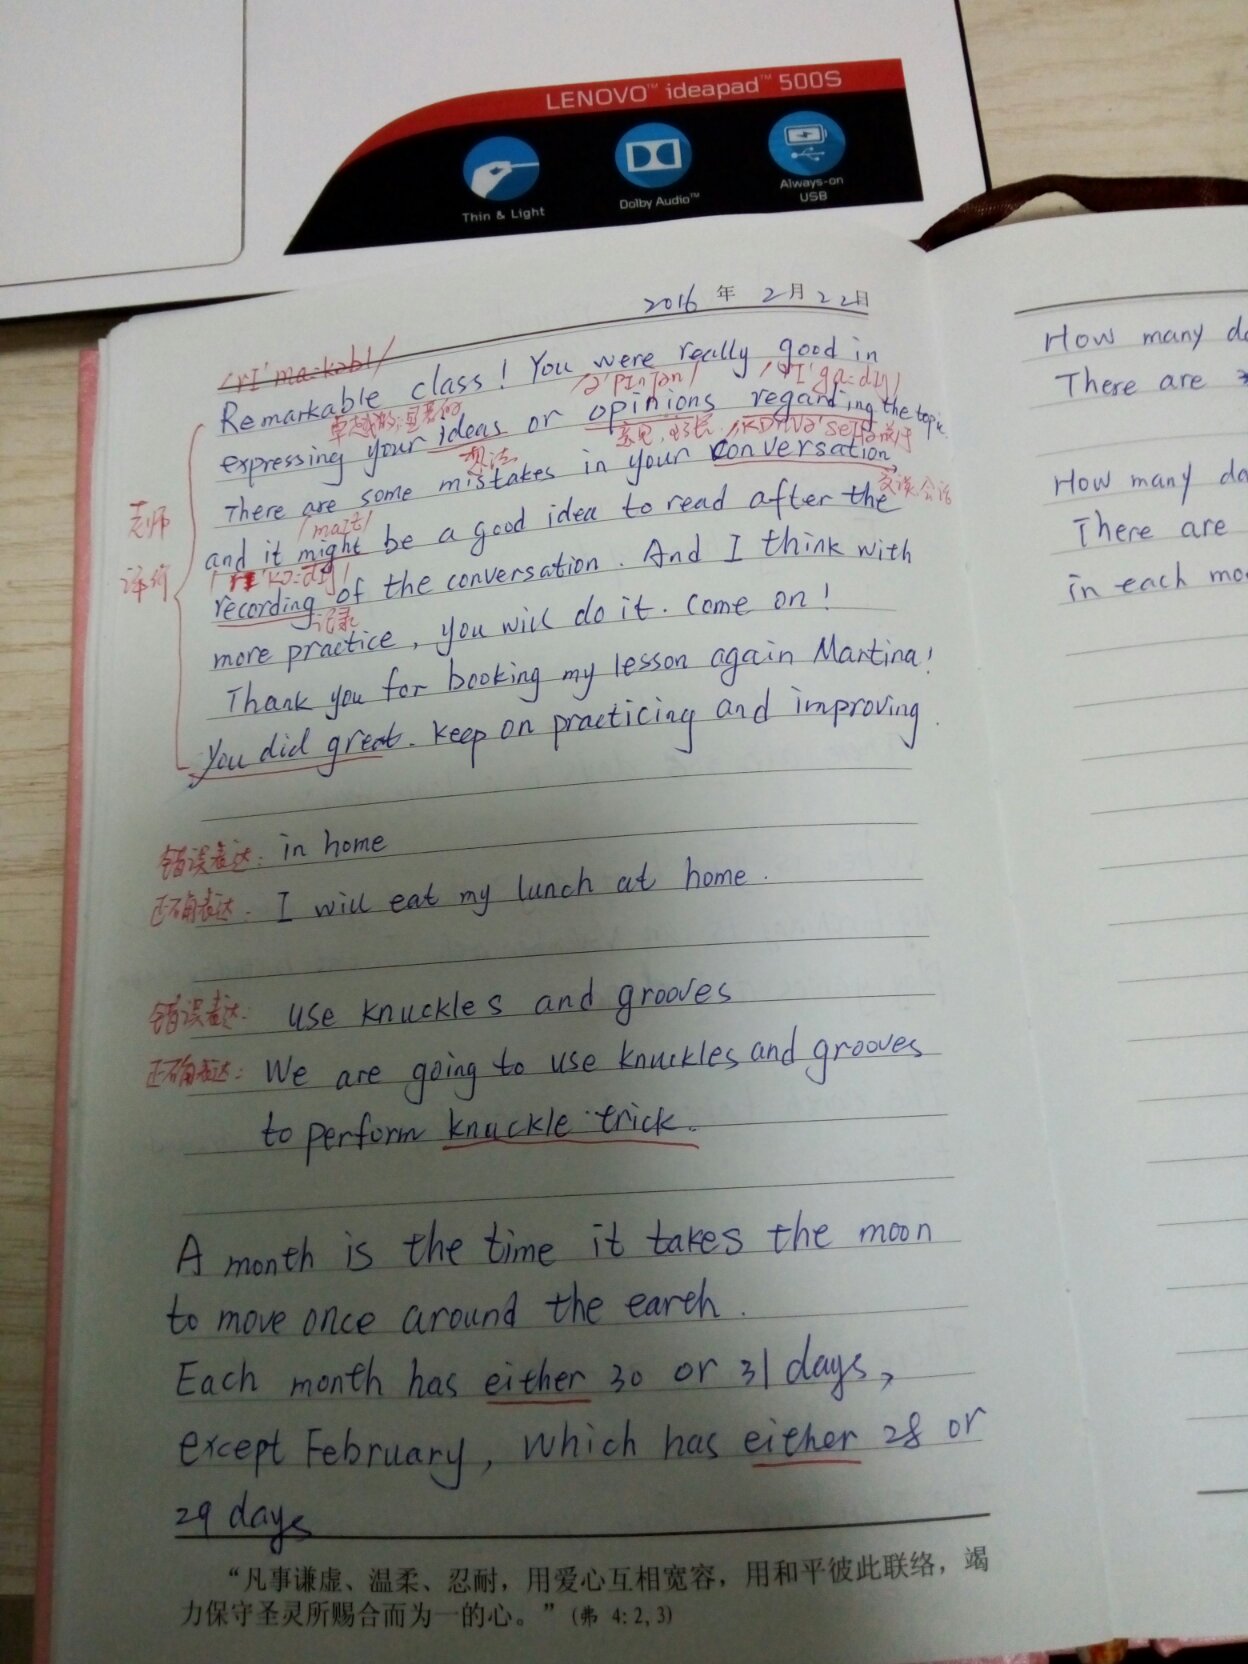 LENOVO™ ideapad™ 500S
Thin & Light
Dolby Audio™
Always-on
USB
2016 年 2 月 22 日
/rI'ma:kəbl/
Remarkable class! You were really good in
卓越的;显著的 /ə'pInjən/ /rI'ga:dIŋ/
expressing your ideas or opinions regarding the topic.
想法 意见, 关于
There are some mistakes in your conversation,
交谈会话
/maIt/
and it might be a good idea to read after the
/rI'kɔ:dIŋ/
recording of the conversation. And I think with
记录
more practice, you will do it. Come on!
Thank you for booking my lesson again Martina!
You did great. Keep on practicing and improving.
老师
评价
错误表达: in home
正确表达: I will eat my lunch at home.
错误表达: use knuckles and grooves
正确表达: We are going to use knuckles and grooves
to perform knuckle trick.
A month is the time it takes the moon
to move once around the earth.
Each month has either 30 or 31 days,
except February, which has either 28 or
29 days
“凡事谦虚、温柔、忍耐，用爱心互相宽容，用和平彼此联络，竭
力保守圣灵所赐合而为一的心。”(弗 4:2,3)
How many
There are
How many
There are
in each